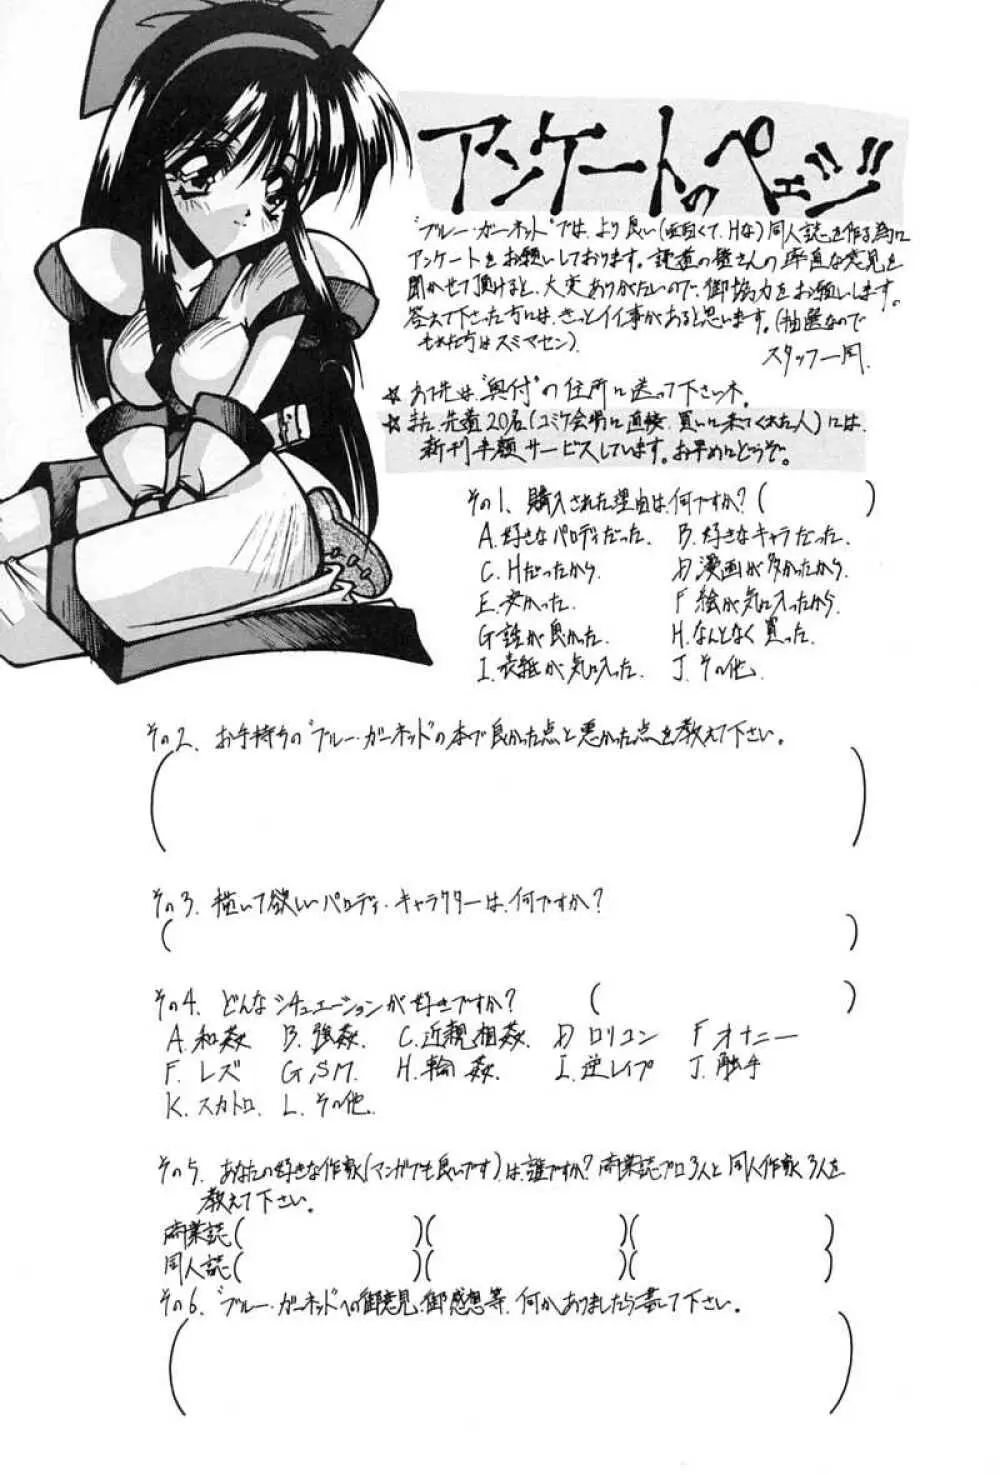 アンケートのペェジ
"ブルー・ガーネット"では、より良い(面白くて、Hな)同人誌を作る為に
アンケートをお願いしております。読者の皆さんの率直な意見を
聞かせて頂けると、大変ありがたいので、御協力をお願いします。
答えて下さった方には、きっとイイ事があると思います。(抽選なので
もれた方はスミマセン)
スタッフ一同.
☆ あて先は、"奥付"の住所に送って下さいネ。
☆ また、先着20名(コミケ会場に直接、買いに来てくれた人)には、
新刊半額サービスしています。お早めにどうぞ。
その1. 購入された理由は、何ですか?( )
A.好きなパロディだった. B.好きなキャラだった.
C.Hだったから. D漫画が多かったから.
E.安かった. F絵が気に入ったから.
G話が良かった. H.なんとなく買った.
I.表紙が気に入った. J.その他.
その2. お手持ちの"ブルー・ガーネット"の本で良かった点と悪かった点を教えて下さい。
( )
その3. 描いて欲しいパロディ・キャラクターは、何ですか?
( )
その4. どんなシチュエーションが好きですか? ( )
A.和姦 B.強姦. C.近親相姦. D ロリコン F オナニー
F.レズ G.SM. H.輪姦. I.逆レイプ J.触手
K.スカトロ. L.その他.
その5. あなたの好きな作家(マンガでも良いです)は、誰ですか?商業誌プロ3人と同人作家3人を
教えて下さい。
商業誌( )( )( )
同人誌( )( )( )
その6. "ブルー・ガーネット"への御意見、御感想等、何かありましたら書いて下さい。
( )